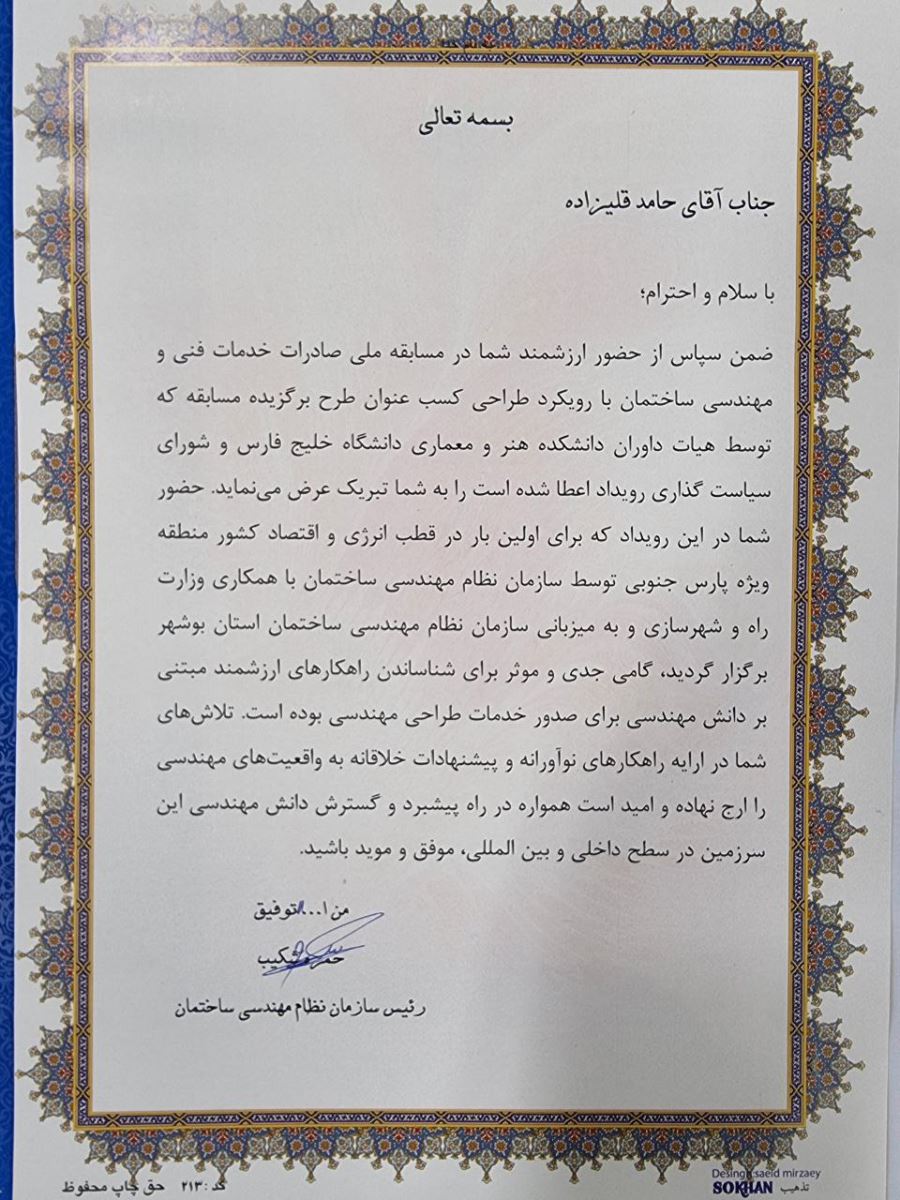 بسمه تعالی
جناب آقای حامد قلیزاده
با سلام و احترام؛
ضمن سپاس از حضور ارزشمند شما در مسابقه ملی صادرات خدمات فنی و
مهندسی ساختمان با رویکرد طراحی کسب عنوان طرح برگزیده مسابقه که
توسط هیات داوران دانشکده هنر و معماری دانشگاه خلیج فارس و شورای
سیاست گذاری رویداد اعطا شده است را به شما تبریک عرض می‌نماید. حضور
شما در این رویداد که برای اولین بار در قطب انرژی و اقتصاد کشور منطقه
ویژه پارس جنوبی توسط سازمان نظام مهندسی ساختمان با همکاری وزارت
راه و شهرسازی و به میزبانی سازمان نظام مهندسی ساختمان استان بوشهر
برگزار گردید، گامی جدی و موثر برای شناساندن راهکارهای ارزشمند مبتنی
بر دانش مهندسی برای صدور خدمات طراحی مهندسی بوده است. تلاش‌های
شما در ارایه راهکارهای نوآورانه و پیشنهادات خلاقانه به واقعیت‌های مهندسی
را ارج نهاده و امید است همواره در راه پیشبرد و گسترش دانش مهندسی این
سرزمین در سطح داخلی و بین المللی، موفق و موید باشید.
من ا... توفیق
حمزه شکیب
رئیس سازمان نظام مهندسی ساختمان
Desing: saeid mirzaey
تذهیب SOKHAN
کد: ۲۱۳ حق چاپ محفوظ